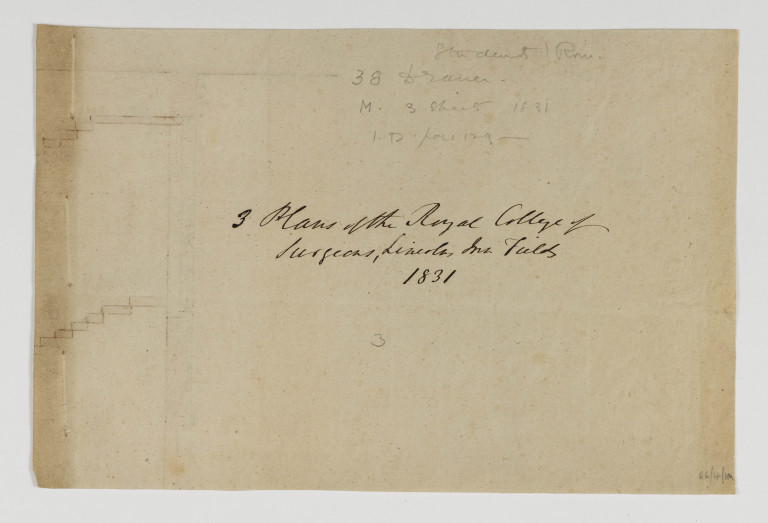 Students Row.
38 Drawer.
M. 3 Sheets 1831
3 Plans of the Royal College of
Surgeons, Lincolns Inn Fields
1831
3